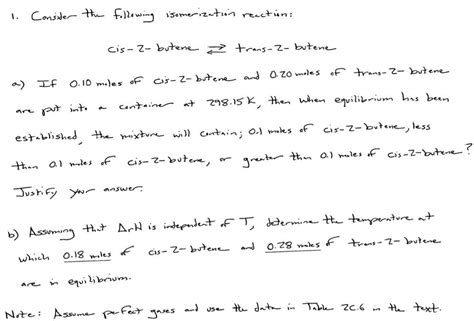 1. Consider the following isomerization reaction:
cis-2-butene ⇄ trans-2-butene
a) If 0.10 moles of cis-2-butene and 0.20 moles of trans-2-butene
are put into a container at 298.15 K, then when equilibrium has been
established, the mixture will contain; 0.1 moles of cis-2-butene, less
than 0.1 moles of cis-2-butene, or greater than 0.1 moles of cis-2-butene?
Justify your answer.
b) Assuming that ΔrH is independent of T, determine the temperature at
which 0.18 moles of cis-2-butene and 0.28 moles of trans-2-butene
are in equilibrium.
Note: Assume perfect gases and use the data in Table 2C.6 in the text.